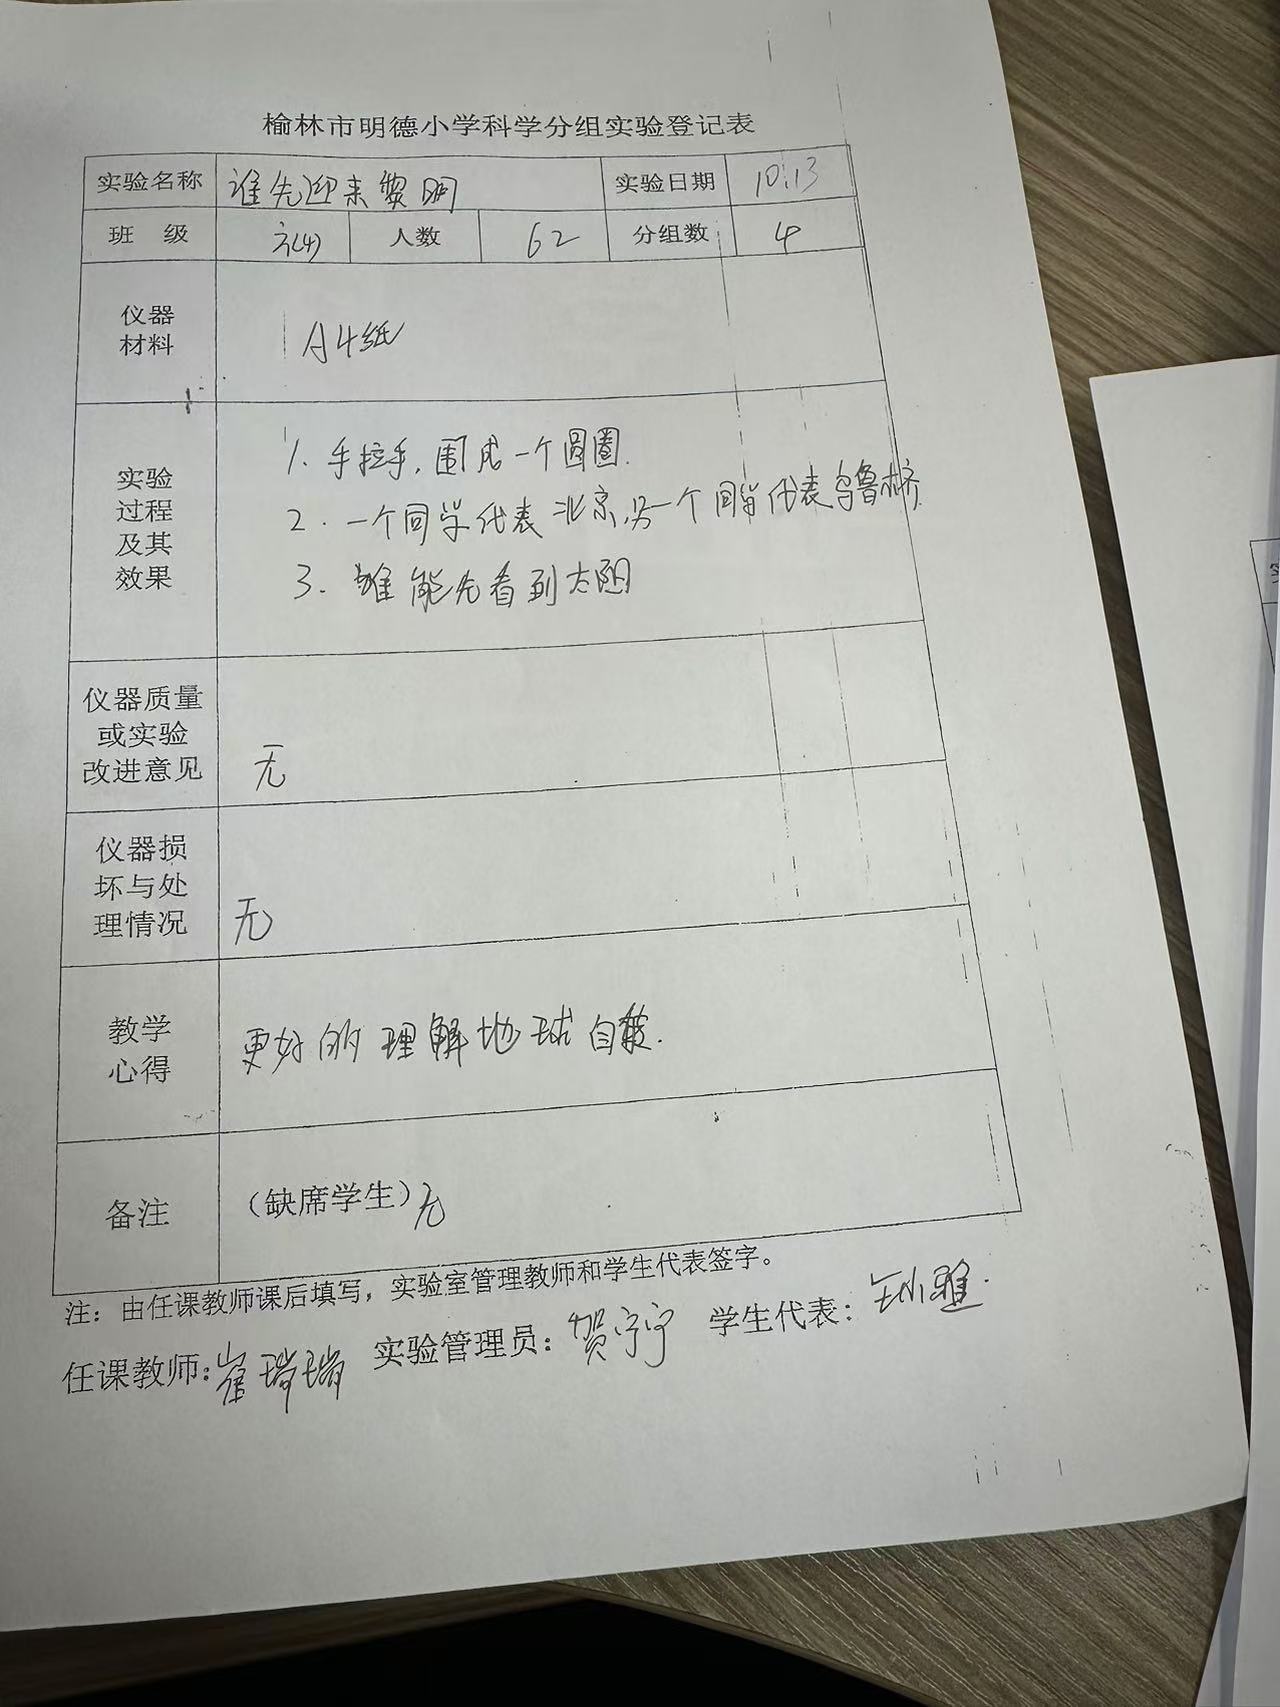 榆林市明德小学科学分组实验登记表
实验名称 谁先迎来黎明 实验日期 10.13
班 级 六(4) 人数 62 分组数 4
仪器
材料
A4纸
实验
过程
及其
效果
1. 手拉手,围成一个圆圈.
2. 一个同学代表北京,另一个同学代表乌鲁木齐.
3. 谁能先看到太阳
仪器质量
或实验
改进意见
无
仪器损
坏与处
理情况
无
教学
心得
更好的理解地球自转.
备注
(缺席学生)无
注:由任课教师课后填写,实验室管理教师和学生代表签字。
任课教师:崔瑞瑞 实验管理员:贺宁宁 学生代表: